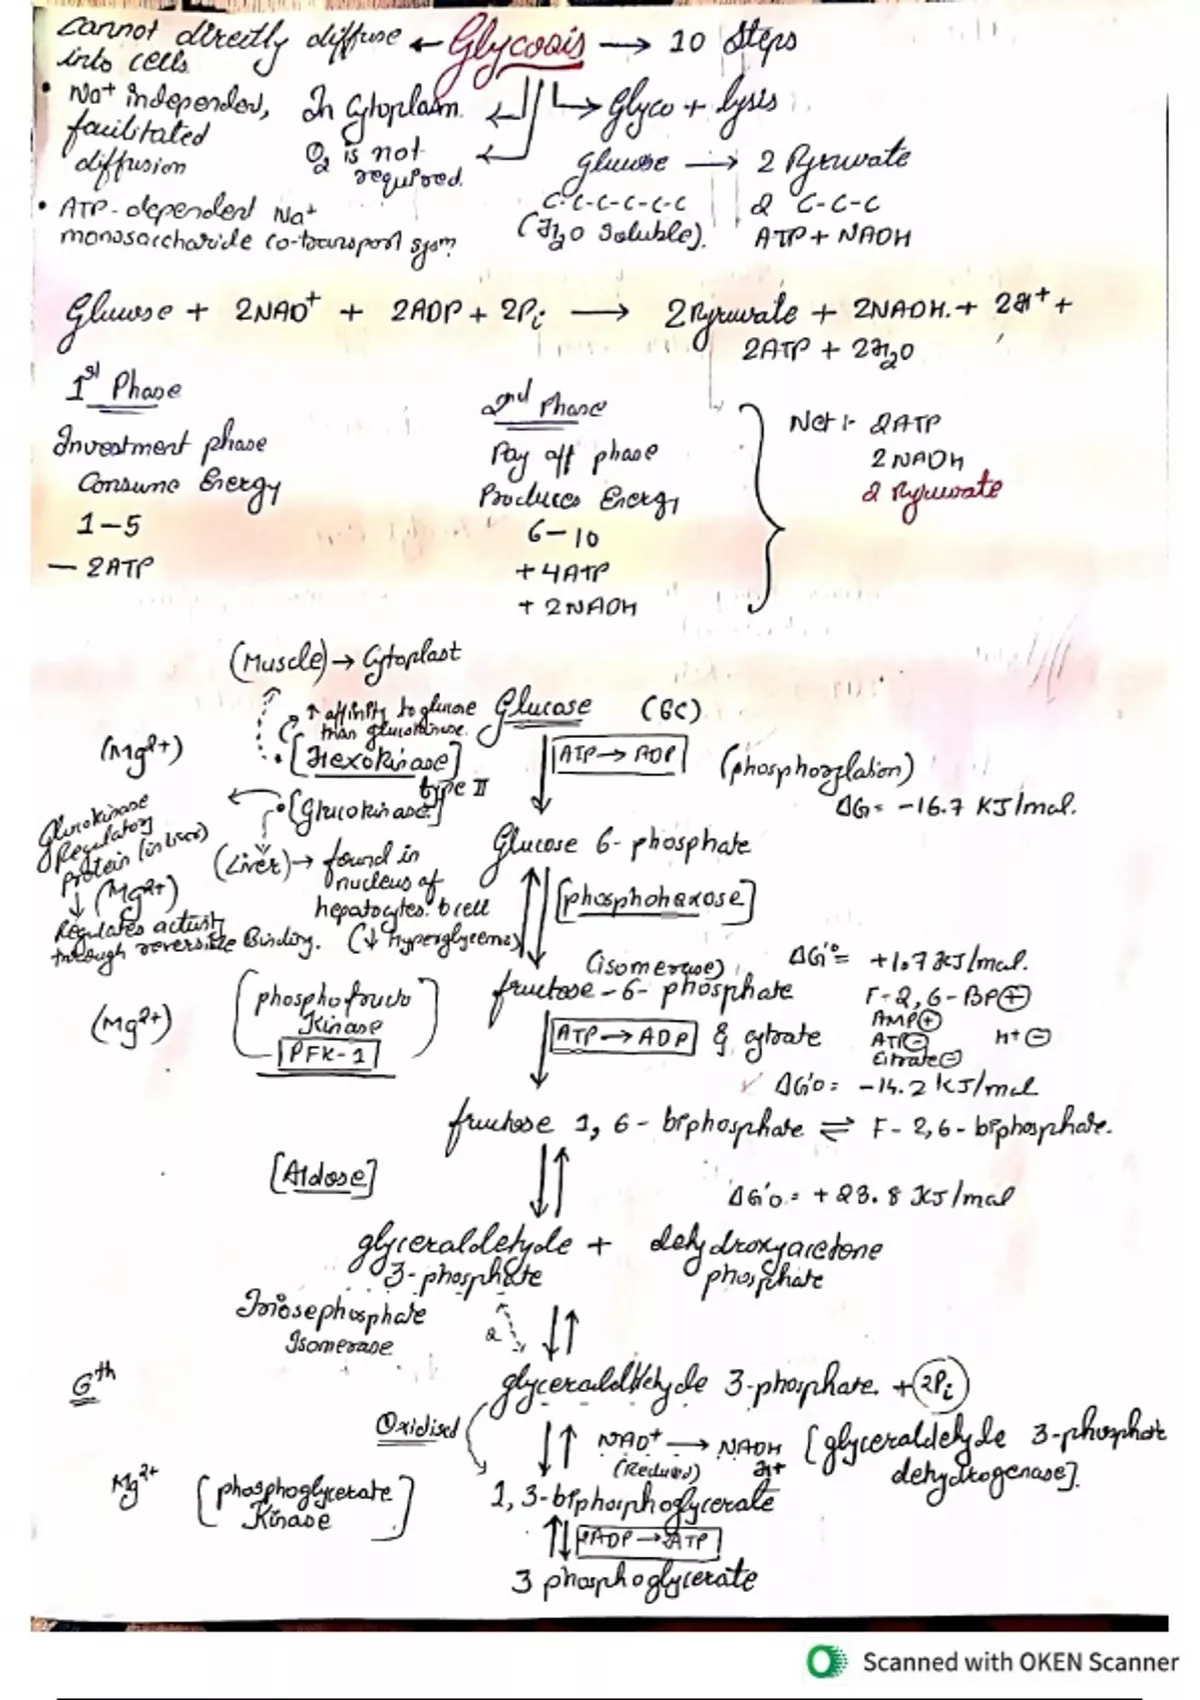 cannot directly diffuse ← Glycosis → 10 Steps
into cells.
• Na+ independent, In Cytoplasm. → Glyco + lysis
facilitated
diffusion
O2 is not
required.
Glucose → 2 Pyruvate
C-C-C-C-C-C 2 C-C-C
(H2O Soluble). ATP + NADH
• ATP-dependent Na+
monosaccharide co-transport sysm
Glucose + 2NAD+ + 2ADP + 2Pi → 2Pyruvate + 2NADH + 2H+ +
2ATP + 2H2O
1st Phase
Investment phase
Consume Energy
1-5
- 2ATP
2nd Phase
Pay off phase
Produces Energy
6-10
+ 4ATP
+ 2NADH
Net :- 2ATP
2 NADH
2 Pyruvate
(Muscle) → Cytoplast
↑ affinity to glucose
than glucokinase.
Glucose (6C)
(Mg2+) [Hexokinase]
type II
ATP → ADP (phosphorylation)
ΔG = -16.7 KJ/mol.
• [Glucokinase]
Glucokinase
Regulatory
protein (in liver)
↓ (Mg2+)
Regulates activity
through reversible Binding.
(Liver) → found in
nucleus of
hepatocytes. b cell
(↓ Hyperglycems)
Glucose 6-phosphate
[phosphohexose]
(isomerase)
ΔG'° = +1.7 KJ/mol.
fructose-6-phosphate
F-2,6-BP⊕
AMP⊕
ATP⊖ H+ ⊖
Citrate⊖
(Mg2+) (phosphofructo
Kinase
PFK-1)
ATP → ADP & cytrate
ΔG'o = -14.2 KJ/mol
fructose 1,6-biphosphate ⇌ F-2,6-biphosphate.
[Aldose]
ΔG'o = +23.8 KJ/mol
glyceraldehyde + dehydroxyacetone
3-phosphate phosphate
Triosephosphate
Isomerase
2
6th
glyceraldehyde 3-phosphate. + 2Pi
Oxidised
NAD+ → NADH [glyceraldehyde 3-phosphate
(Reduces) H+ dehydrogenase].
1,3-biphosphoglycerate
Mg2+ [phosphoglycerate
Kinase]
2ADP → 2ATP
3 phosphoglycerate
Scanned with OKEN Scanner